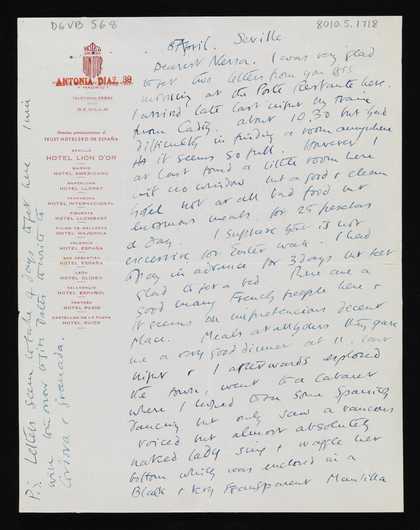 DGVB 568
8010.5.1718
ANTONIA DIAZ, 39.
SEVILLA
HOTEL LION D'OR
MADRID
HOTEL AMERICANO
BARCELONA
HOTEL LLORET
HOTEL INTERNACIONAL
HOTEL MALLORCA
VALENCIA
HOTEL ESPAÑA
SAN SEBASTIAN
HOTEL ESPAÑA
LEON
HOTEL OLIDEN
VALLADOLID
HOTEL ESPAÑOL
HOTEL PARIS
CASTELLON DE LA PLANA
HOTEL SUIZO
April. Seville
Dearest Nessa. I was very glad
to get two letters from you this
morning at the Poste Restante here.
I arrived late last night by train
from Cadiz. about 10.30 but had
difficulty in finding a room anywhere
As it seems so full. However I
at last found a little room here
with no window but a good & clean
hotel not at all bad food but
enormous meals. for 25 pesetas
a day. I suppose this is not
excessive for Easter week I had
to pay in advance for 3 days but feel
glad to get a bed There are a
good many French people here &
it seems an unpretencious decent
place. Meals at all hours they gave
me a very good dinner at 11. last
night & I afterwards explored
the town, went to a Cabaret
where I hoped to see some Spanish
dancing but only saw a raucous
voiced but almost absolutely
naked lady sing & waggle her
bottom which was enclosed in a
Black & very transparent Mantilla
P.S. Letters seem to take 4 days to get here I will
wire tomorrow to give dates to write to
Cordova & Granada.